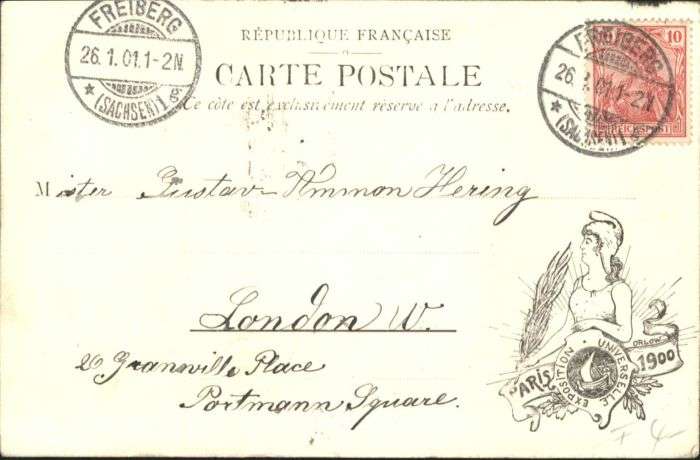 FREIBERG
26.1.01.1-2N.
★ (SACHSEN) 1.
RÉPUBLIQUE FRANÇAISE
CARTE POSTALE
Ce côté est exclusivement réservé à l'adresse.
FREIBERG
26. 1. 01. 1-2N
★ (SACHSEN) 1.
10
REICHSPOST
Mister Gustav Ammon Hering
London W.
20 Grannville Place
Portmann Square.
ORLOW
PARIS EXPOSITION UNIVERSELLE 1900